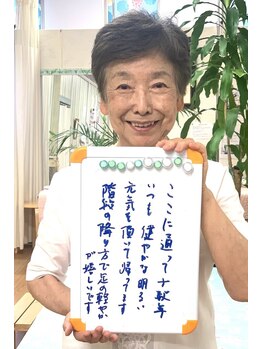 ここに通って十数年
いつも健やかな明るい
元気を頂いて帰ってます
階段の降り方で足の軽やか
が嬉しいです